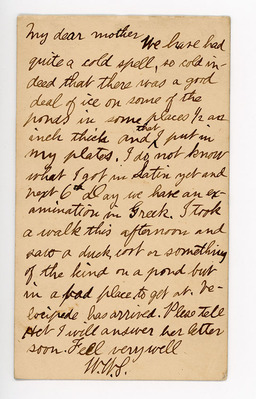 My dear mother We have had
quite a cold spell, so cold in-
deed that there was a good
deal of ice on some of the
ponds in some places ½ an
inch thick and that I put in
my plates. I do not know
what I got in Latin yet and
next 6th Day we have an ex-
amination in Greek. I took
a walk this afternoon and
saw a duck, coot or something
of the kind on a pond but
in a bad place to get at. Ve-
locipede has arrived. Please tell
I will answer her letter
soon. Feel very well